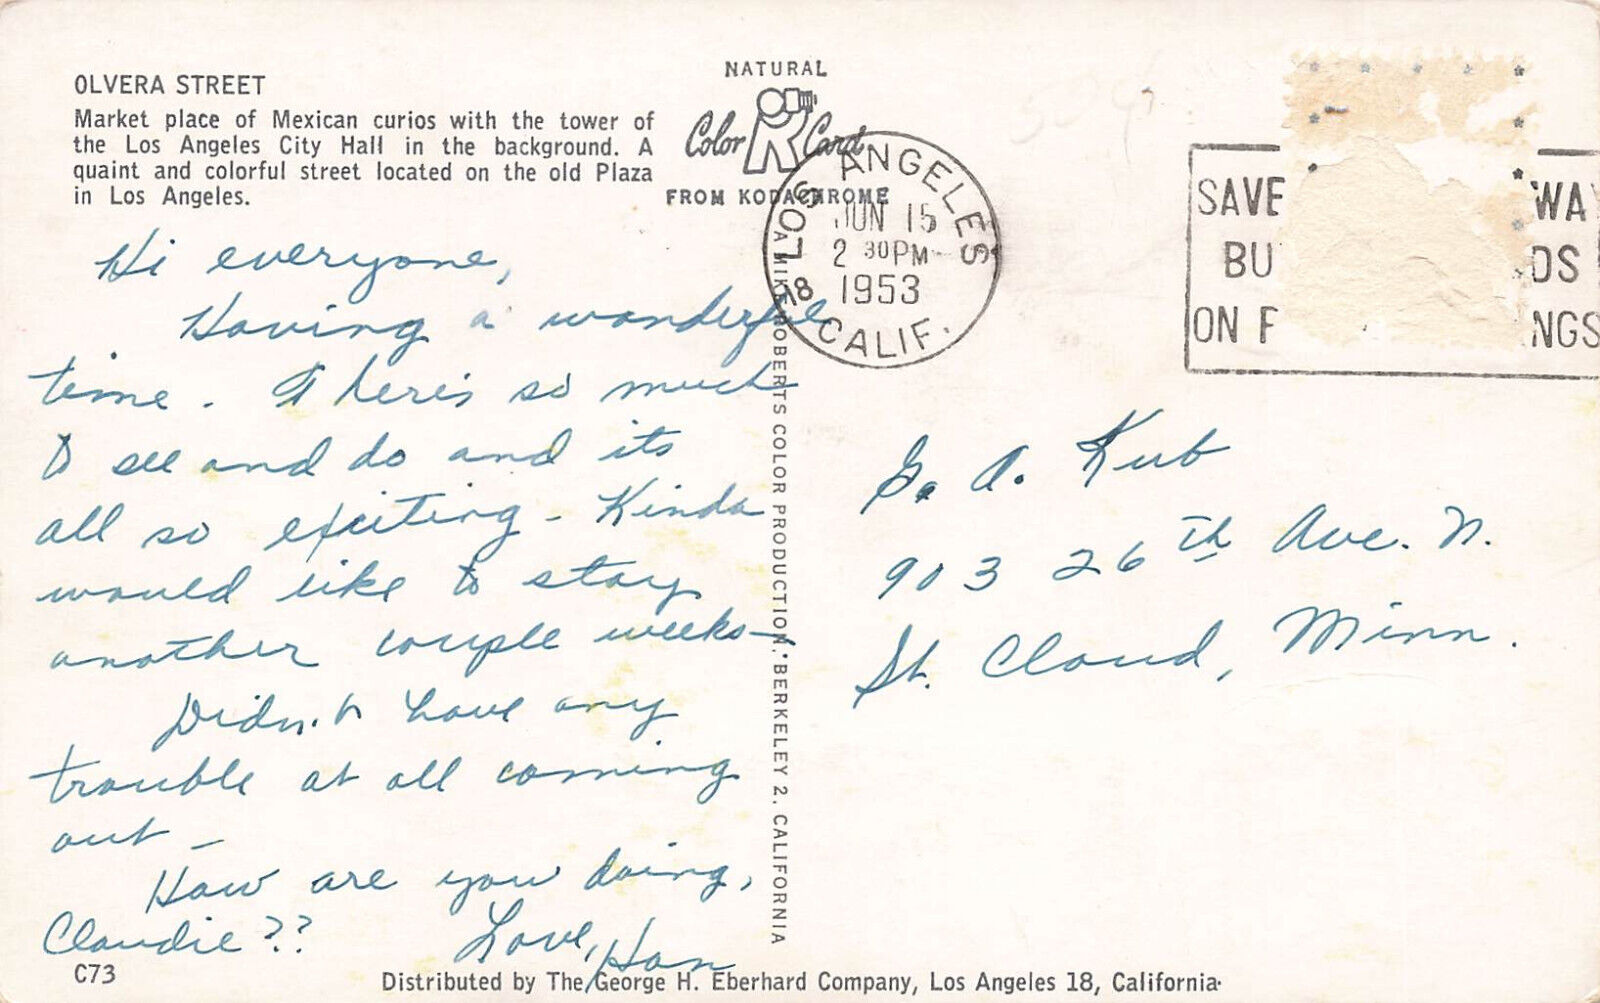 OLVERA STREET
Market place of Mexican curios with the tower of
the Los Angeles City Hall in the background. A
quaint and colorful street located on the old Plaza
in Los Angeles.
NATURAL
Color Card
FROM KODACHROME
LOS ANGELES 18
JUN 15
2 30 PM
1953
CALIF.
SAVE WAY
BU DS
ON F NGS
Hi everyone,
Having a wonderful
time. There's so much
to see and do and its
all so exciting - Kinda
would like to stay
another couple weeks-
Didn't have any
trouble at all coming
out -
How are you doing,
Claudie??
Love,
A MIKE ROBERTS COLOR PRODUCTION, BERKELEY 2, CALIFORNIA
G. A. Kub
903 26th Ave. N.
St. Cloud, Minn.
C73
Distributed by The George H. Eberhard Company, Los Angeles 18, California